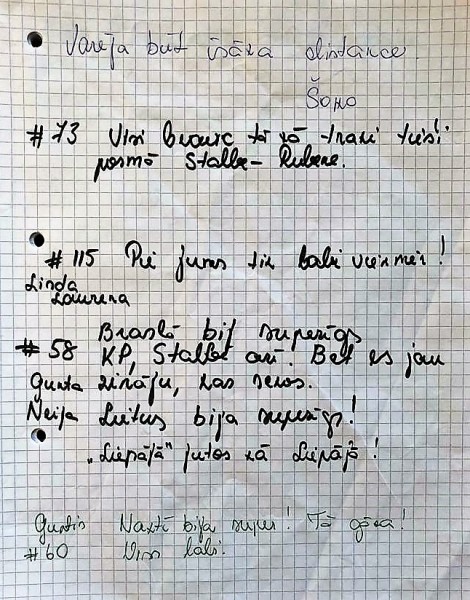 Varēja būt īsāka distance.
Šoно
#73 Visi brauc tā kā traki tieši
posmā Stalbe-Rubene.
#115 Pie jums tik labi vienmēr!
Linda
Laurena
Braslā bij superīgs
#58 KP, Stalbē arī! Bet es jau
Gunta zināju, kas sekos.
Neija Lietus bija superīgs!
"Liepājā" jutos kā Liepājā!
Guntis Naktī bija super! Tā gāza!
#60 Viss labi.